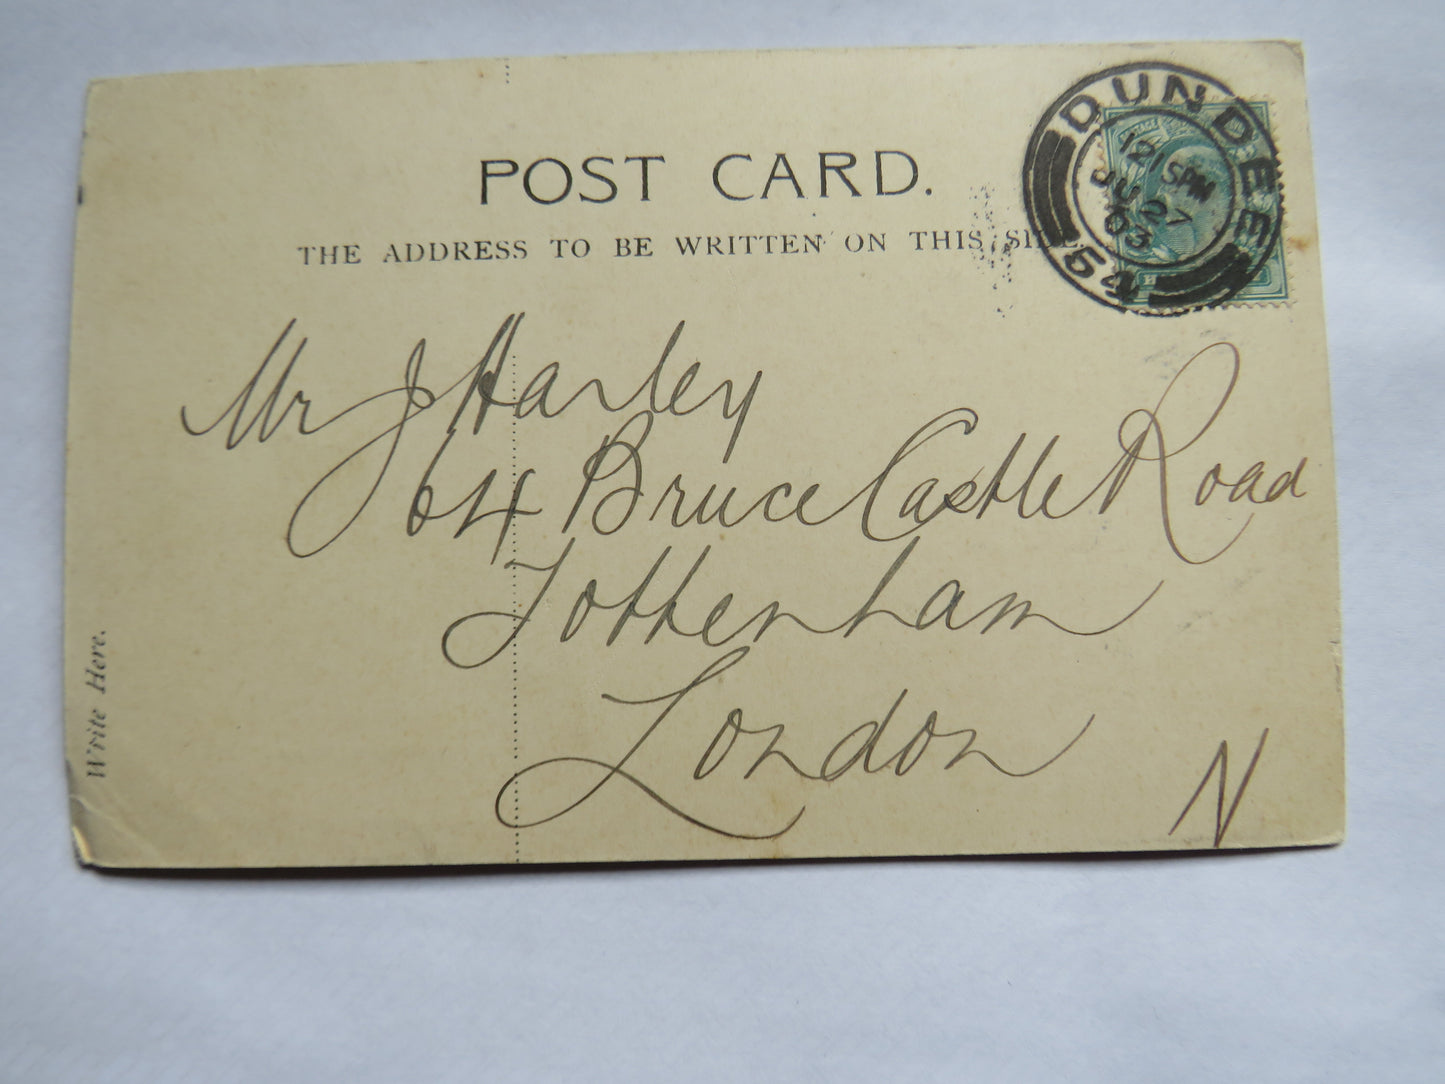 POST CARD.
THE ADDRESS TO BE WRITTEN ON THIS SIDE.
DUNDEE
12 15PM
JU 27
03
54
Mr J Harley
64 Bruce Castle Road
Tottenham
London
N
Write Here.